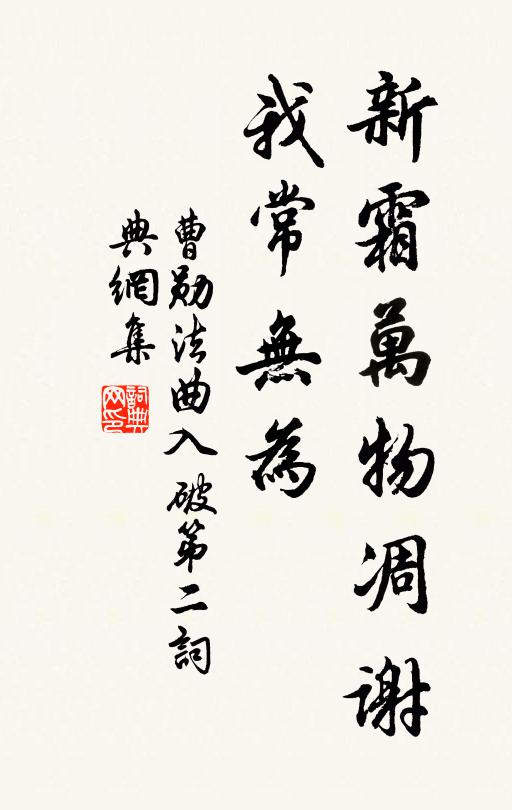 新霜萬物凋謝
我常無為
曹勛法曲入破第二詞
典網集
詞典網印